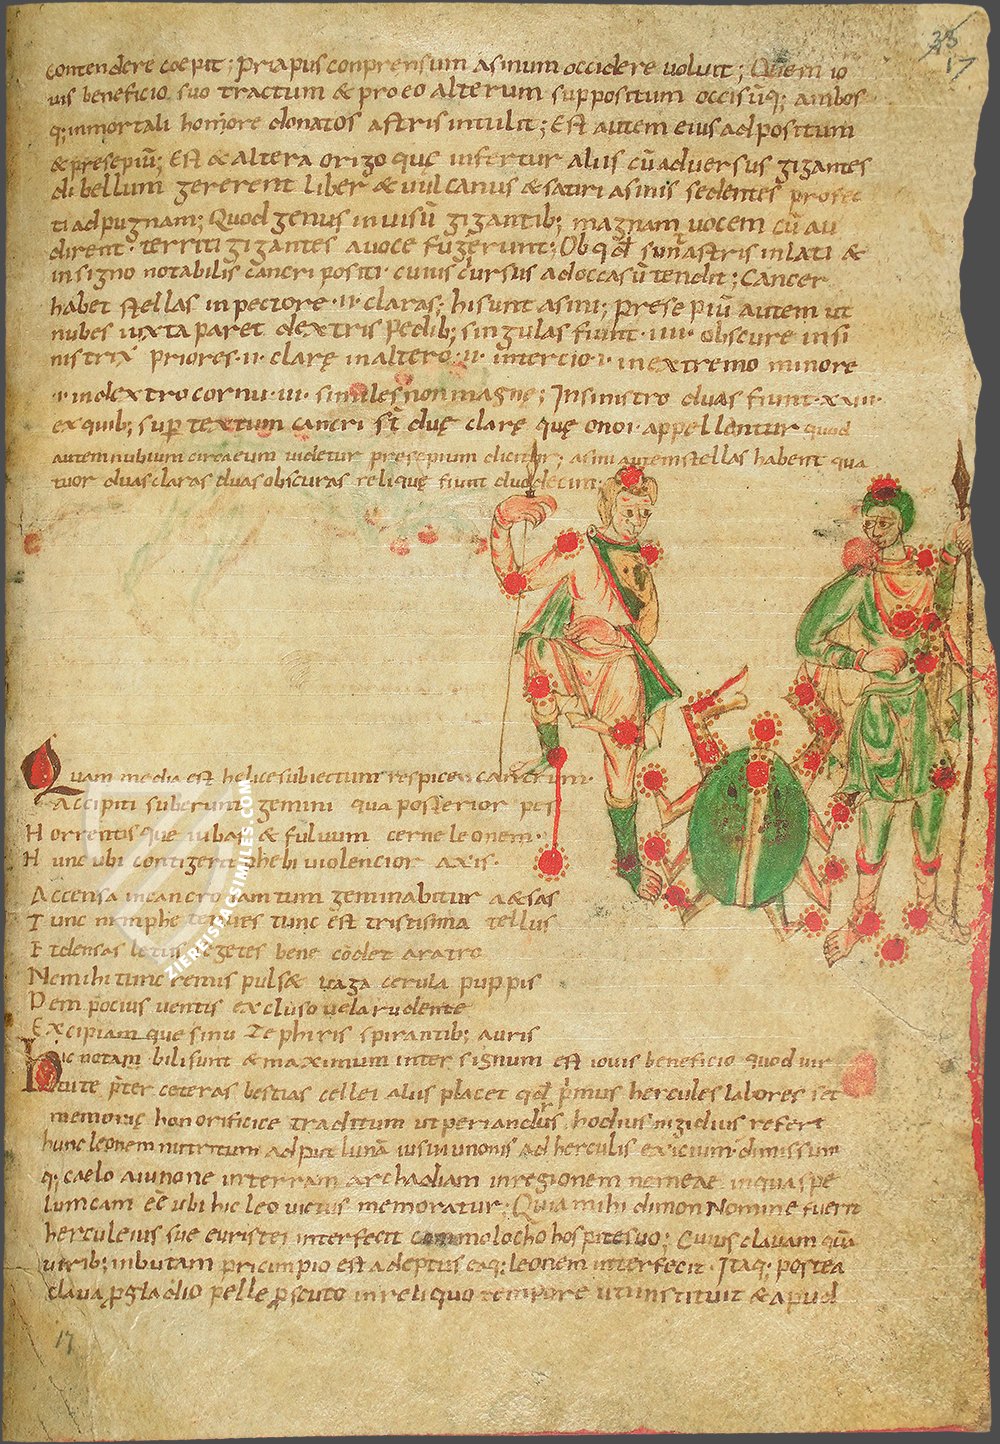 33
17
contendere coepit; priapus conprensum asinum occidere voluit; Quem io
uis beneficio suo tractum & pro eo alterum suppositum occisūq; ambos
q; inmortali honore donatos astris intulit; Est autem eius adpositum
& presepiū; Est & altera origo quę infertur aliis cū adversus gigantes
di bellum gererent liber & vulcanus & satiri asinis sedentes profec
ti ad pugnam; Quod genus invisū gigantib; magnam vocem cū au
dirent· territi gigantes a voce fugerunt; Ob qđ sunt astris inlati &
in signo notabilis cancri positi· cuius cursus ad occasū tendit; Cancer
habet stellas in pectore ·II· claras; hi sunt asini; presepiū autem ut
nubes iuxta paret dextris pedib; singulas fiunt ·IIII· obscure in si
nistris priores ·II· clarę in altero ·II· in tercio ·I· in extremo minore
·I· in dextro cornu ·III· similes non magnę; In sinistro duas fiunt XIIII·
ex quib; sup textum cancri st̄ duę clarę quę onoi· appellentur quod
autem nubium circa eum videtur presepium dicitur; asini autem stellas habent qua
tuor duas claras duas obscuras relique fiunt duodecim·
Quam media est helice subiectum respice cancrum·
Accipiti suberunt gemini qua posterior pes
Horrentisque iubas & fulvum cerne leonem·
Hunc ubi contigerit phebi violencior axis·
Accensa in cancro tamtum geminabitur aestas
Tunc nimphe tenues tunc est tristissima tellus
Et densas letus segetes bene cōdet aratro
Ne mihi tunc remis pulsae vaga cerula puppis
Dem pocius ventis excluso vela rudente
Excipiamque sinu Zephiris spirantib; auris
Hic notam bili sunt & maximum inter signum est iovis beneficio quod vir
tute pr̄ter ceteras bestias cellei aliis placet qđ primus hercules labores set
memorię honorifice traditum ut periandus hodius nigidius refert
hunc leonem nutritum apud lunam iussu iunonis ad herculis exicium dimissum
q; caelo a iunone in terram archadiam in regionem nemeae in qua spe
luncam eē ubi hic leo victus memoratur; Quia mihi dimon nomine fuerit
herculeius sue euristei interfecit cum molocho hospite suo; Cuius clavam quā
virib; inbutam princimpio est adeptus eaq; leonem interfecit· Itaq; postea
clava p gladio pelle p scuto in reliquo tempore uti instituit & apud
17
ZIEREISFACSIMILES.COM